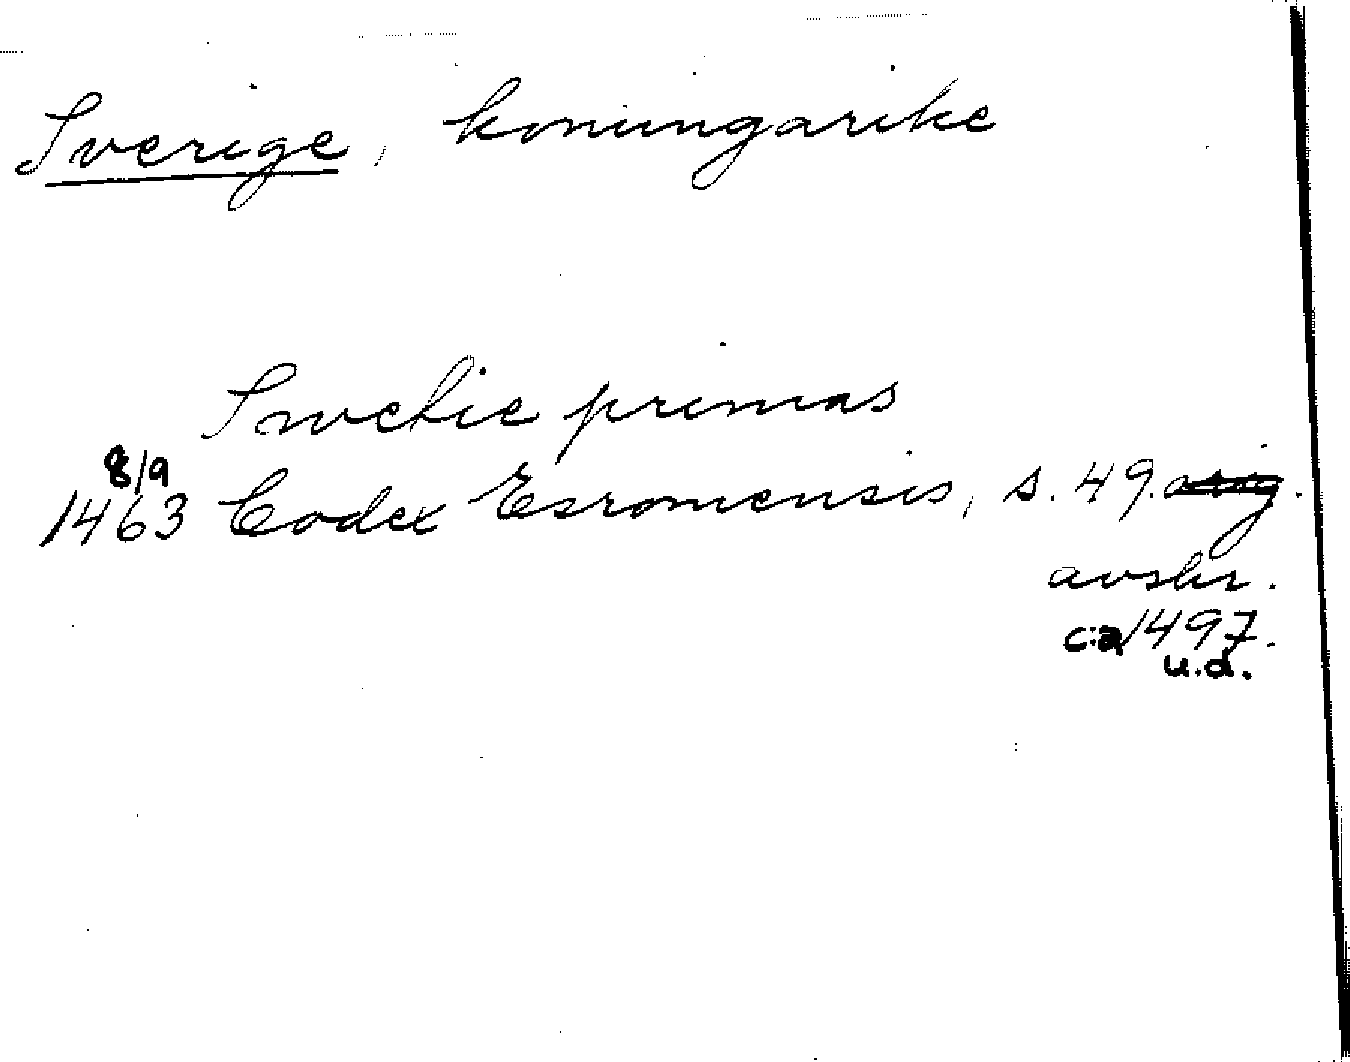 Sverige, konungarike
Swetie primas
8/9
1463 Codex Esromensis, s. 49. orig.
avskr.
c:a 1497.
u.d.